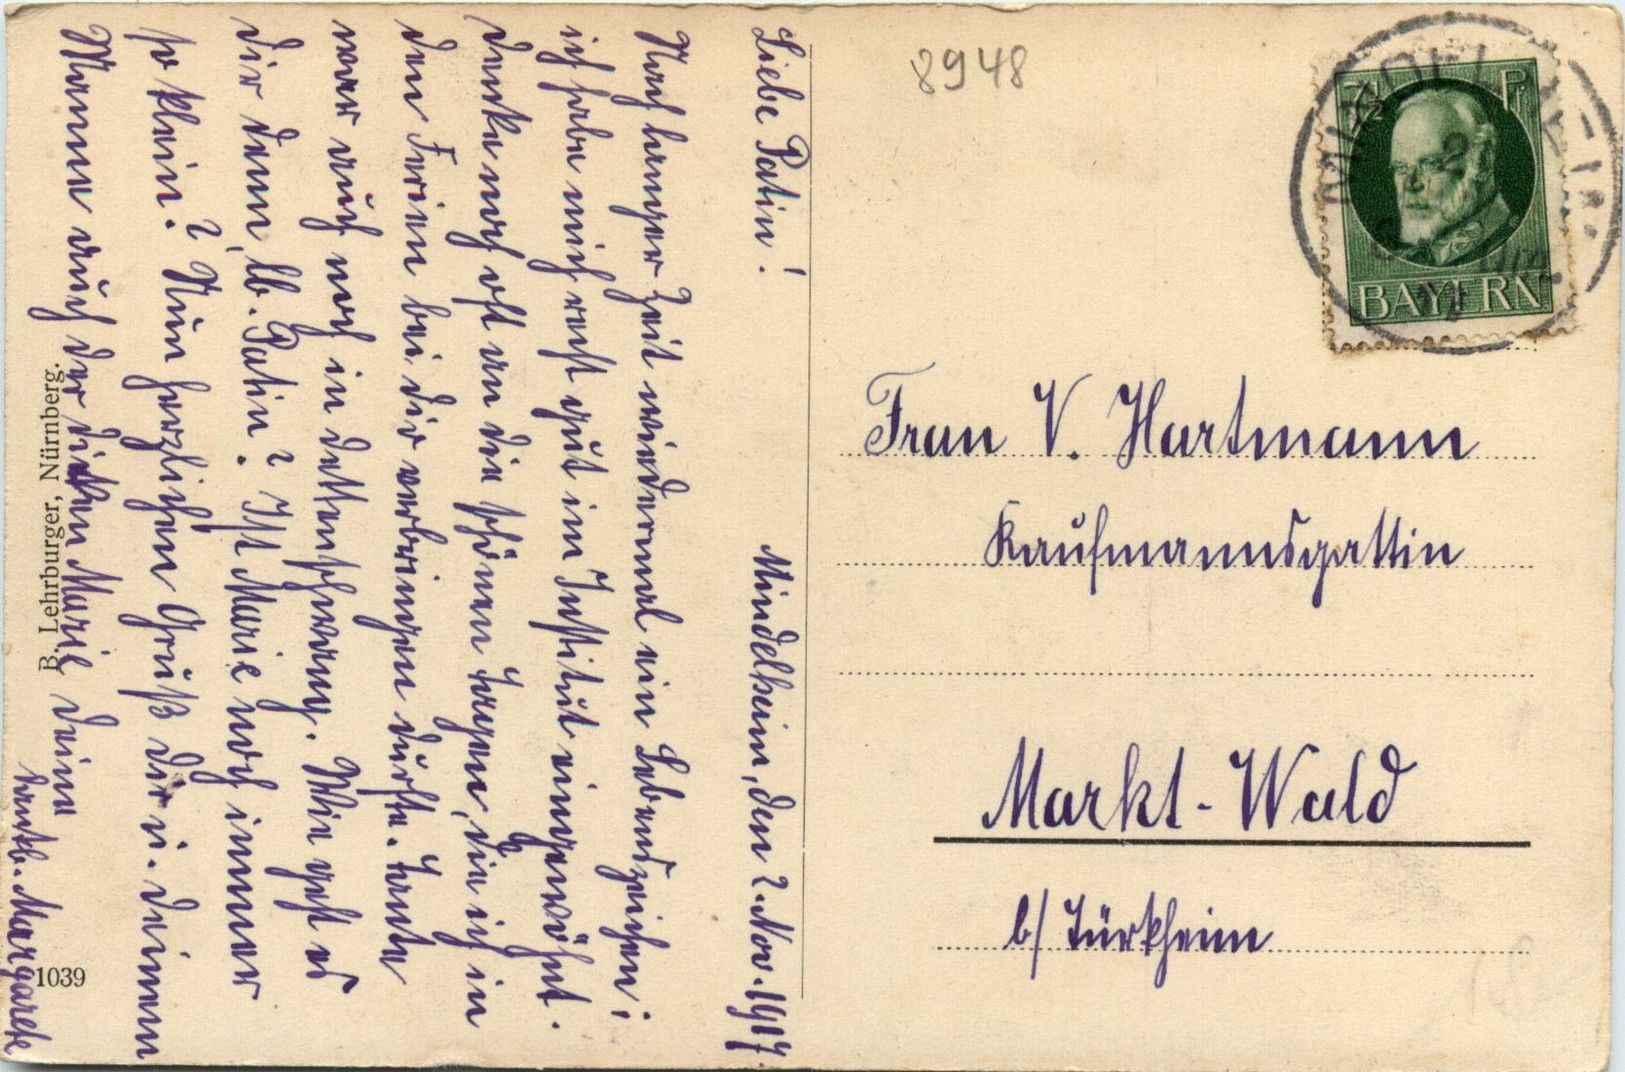 8948
7½ Pf
BAYERN
MINDELHEIM
2
Liebe Patin!
Mindelheim, den 2. Nov. 1917.
Nach langer Zeit wiedermal ein Lebenszeichen;
ich habe mich recht gut im Institut eingewöhnt.
Denke noch oft an die schönen Tagen, die ich in
den Ferien bei dir verbringen durfte. Tante
war auch noch in Dettenschwang. Wie geht es
dir denn, lb. Patin? Ist Marie noch immer
so klein? Nun herzlichen Gruß dir u. deinem
Manne auch der dicken Marie deine
dankb. Margarete
Frau V. Hartmann
Kaufmannsgattin
Markt-Wald
b/ Türkheim
B. Lehrburger, Nürnberg.
1039